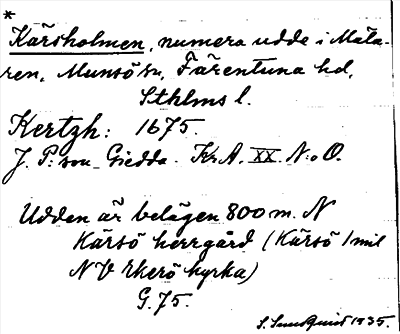 *
Kärsholmen, numera udde i Mäla-
ren, Munsö sn, Färentuna hd,
Sthlms l.
Kertzh: 1675.
J. P:son Giedda. Kr.A. XX. N:o O.
Udden är belägen 800 m. N
Kärsö herrgård (Kärsö 1 mil
NV Ekerö kyrka)
G. 75.
S. Sundquist 1935.